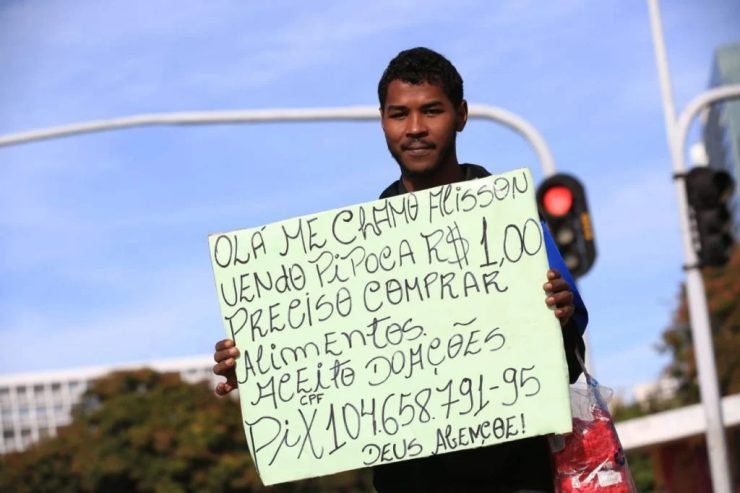 OLÁ ME CHAMO ALISSON
VENDO PIPOCA R$ 1,00
PRECISO COMPRAR
ALIMENTOS.
ACEITO DOAÇÕES
CPF
PIX 104.658.791-95
DEUS ABENÇOE!